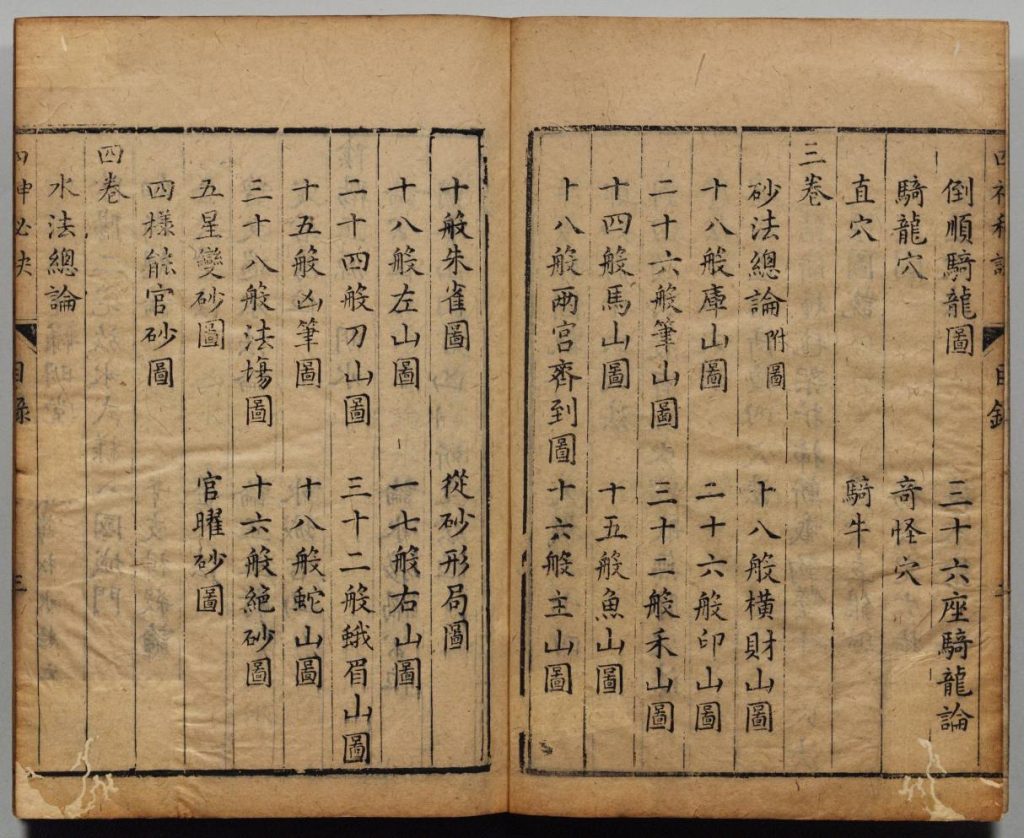 倒順騎龍圖　三十六座騎龍論
騎龍穴　奇怪穴
直穴　騎牛
三卷
砂法總論附圖　十八般橫財山圖
十八般庫山圖　二十六般印山圖
二十六般筆山圖　三十二般禾山圖
十四般馬山圖　十五般魚山圖
十八般兩宮齊到圖　十六般主山圖
十般朱雀圖　從砂形局圖
十八般左山圖　一七般右山圖
二十四般刀山圖　三十二般蛾眉山圖
十五般凶筆圖　十八般蛇山圖
三十八般法塲圖　十六般絕砂圖
五星變砂圖　官曜砂圖
四樣能官砂圖
四卷
水法總論
目錄　三